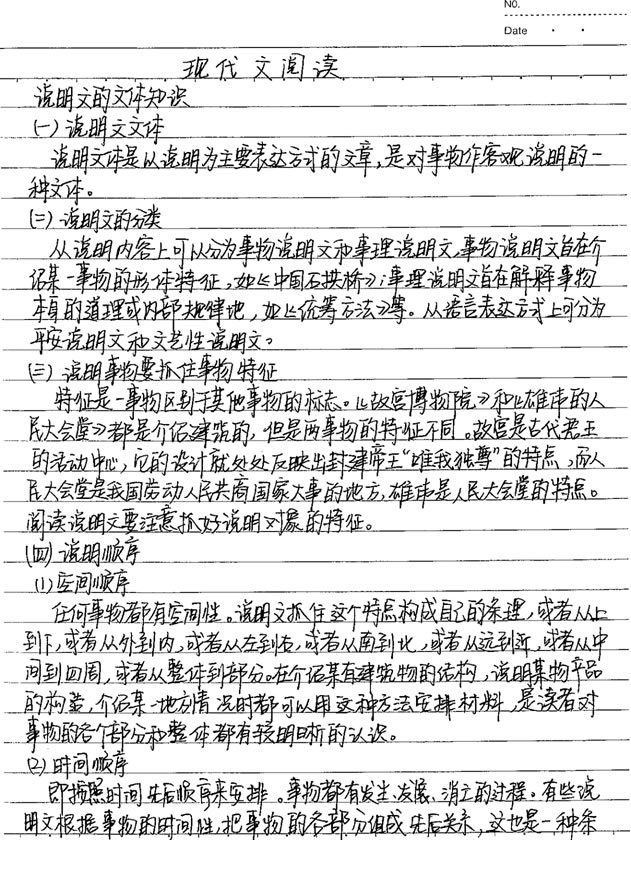 No.
Date
现代文阅读
说明文的文体知识
(一) 说明文文体
说明文体是以说明为主要表达方式的文章,是对事物作客观说明的一
种文体。
(二) 说明文的分类
从说明内容上可以分为事物说明文和事理说明文,事物说明文旨在介
绍某一事物的形体特征,如《中国石拱桥》;事理说明文旨在解释事物
本身的道理或内部规律地,如《统筹方法》等。从语言表达方式上可分为
平安说明文和文艺性说明文。
(三) 说明事物要抓住事物特征
特征是一事物区别于其他事物的标志。《故宫博物院》和《雄伟的人
民大会堂》都是介绍建筑的,但是两事物的特征不同。故宫是古代君王
的活动中心,它的设计就处处反映出封建帝王“唯我独尊”的特点,而人
民大会堂是我国劳动人民共商国家大事的地方,雄伟是人民大会堂的特点。
阅读说明文要注意抓好说明对象的特征。
(四) 说明顺序
(1) 空间顺序
任何事物都有空间性。说明文抓住这个特点构成自己的条理,或者从上
到下,或者从外到内,或者从左到右,或者从南到北,或者从远到近,或者从中
间到四周,或者从整体到部分。在介绍某有建筑物的结构,说明某物产品
的构造,介绍某一地方情况时都可以用这种方法安排材料,是读者对
事物的各个部分和整体都有较明晰的认识。
(2) 时间顺序
即按照时间先后顺序来安排。事物都有发生、发展、消亡的过程。有些说
明文根据事物的时间性,把事物的各部分组成先后关系,这也是一种条